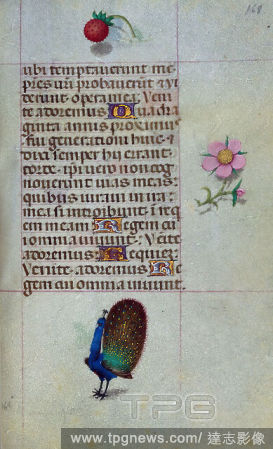 168
ubi temptaverunt me
patres vr̄i probaverūt & vi
derunt opera mea. Veni
te adoremus. Quadra
ginta annis proximus
fui generationi huic &
dixi semper hii errant
corde. ipsi vero nō cog
noverunt vias meas:
quibus iuravi in ira
mea si introibunt ī req
em meam. Regem cui
omnia vivunt. Venite
adoremus. Requiē.
Venite adoremus. Re
gem cui omnia vivunt.
TPG
www.tpgnews.com/達志影像